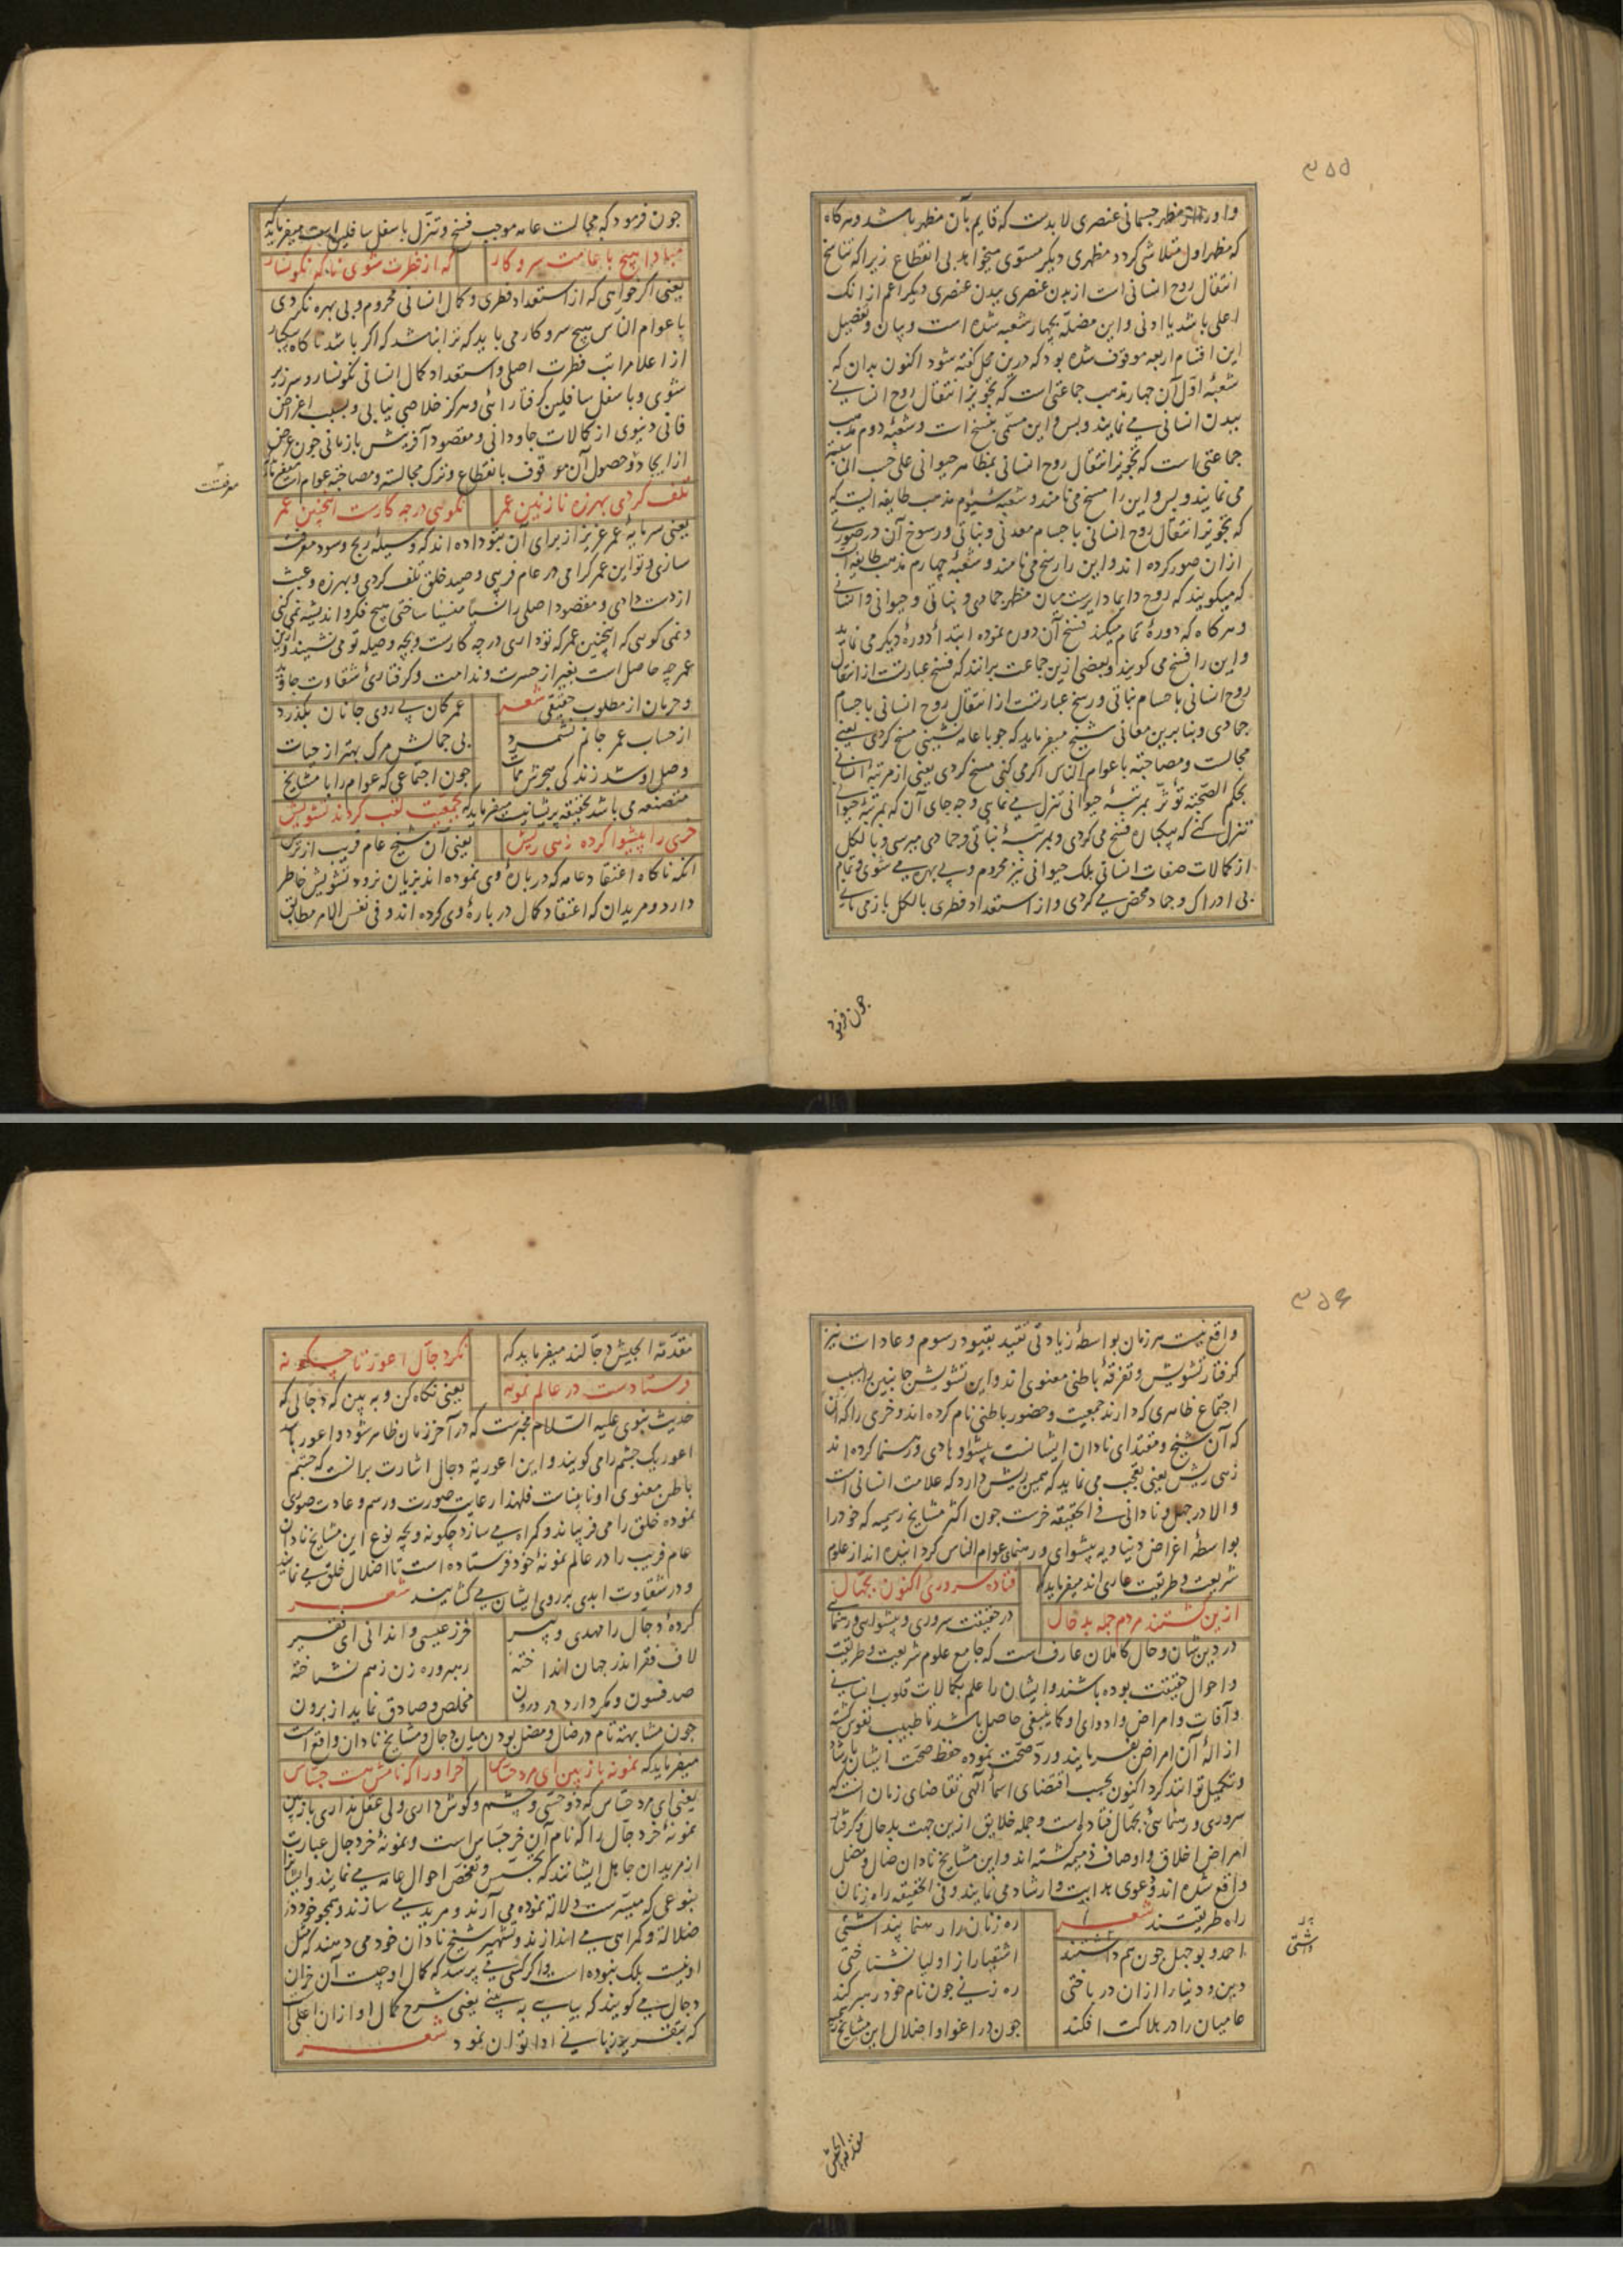 ۳۵۵
و او را از مظهر جسمانی عنصری لابدست که قایم بآن مظهر باشد و هر کاه
که مظهر اول متلاشی کردد مظهری دیکر مستوی میخواهد بی انقطاع زیرا که تناسخ
انتقال روح انسانی است از بدن عنصری ببدن عنصری دیکر اعم از انک
اعلی باشد یا ادنی و این مضله بچهار شعبه شده است و بیان و تفصیل
این اقسام اربعه موقوف شده بود که درین محل کفته شود اکنون بدان که
شعبهٔ اول آن چهار مذهب جماعتی است که تجویز انتقال روح انسانی
ببدن انسانی می نمایند و بس و این مسمی بنسخ است و شعبهٔ دوم مذهب
جماعتی است که تجویز انتقال روح انسانی بمظاهر حیوانی علی حسب المناسبة
می نمایند و بس و این را مسخ می نامند و شعبهٔ سیوم مذهب طایفه ایست که
که تجویز انتقال روح انسانی باجسام معدنی و نباتی و رسوخ آن در صوری
از ان صور کرده اند و این را رسخ می نامند و شعبهٔ چهارم مذهب طایفه است
که میکویند که روح دایما دایرست میان مظهر جمادی و نباتی و حیوانی و انسانی
و هر کاه که دورهٔ تمام میکند فسخ آن دوره نموده ابتدأ دورهٔ دیکر می نماید
و این را فسخ می کویند و بعضی ازین جماعت برانند که فسخ عبارتست از انتقال
روح انسانی باجسام نباتی و رسخ عبارتست از انتقال روح انسانی باجسام
جمادی و بنا برین معانی شیخ میفرماید که چو با عامه نشینی مسخ کردی یعنی
مجالست و مصاحبت با عوام الناس اکر می کنی مسخ کردی یعنی از مرتبهٔ انسانی
بحکم الصحبة تؤثر بمرتبهٔ حیوانی تنزل می نمایی و چه جای آن که بمرتبهٔ حیوانی
تنزل کنی که بیکبار فسخ می کردی و بمرتبهٔ نباتی و جمادی میرسی و بالکل
از کمالات صفات انسانی بلک حیوانی نیز محروم و بی بهره می شوی و تمام
بی ادراک و جماد محض می کردی و از استعداد فطری بالکل باز می مانی
چون فرمود
چون فرمود که مجالست عامه موجب فسخ و تنزل باسفل سافلین است میفرماید که
مبادا هیچ با عامت سرو کار
که از فطرت شوی ناکه نکونسار
یعنی اکر خواهی که از استعداد فطری و کمال انسانی محروم و بی بهره نکردی
با عوام الناس هیچ سرو کار می باید که ترا نباشد که اکر باشد ناکاه بیکبار
از اعلا مراتب فطرت اصلی و استعداد کمال انسانی نکونسار و سرزیر
شوی و باسفل سافلین کرفتار آئی و هرکز خلاصی نیابی و بسبب اغراض
فانی دنیوی از کمالات جاودانی و مقصود آفرینش بازمانی چون غرض
از ایجاد و حصول آن موقوف بانقطاع و ترک مجالست و مصاحبت عوام است میفرماید
تلف کردی بهرزه نازنین عمر
نکوئی در چه کارست اینچنین عمر
یعنی سرمایهٔ عمر عزیز از برای آن بتو داده اند که وسیلهٔ ربح و سود معرفت
معرفتست
سازی و تو این عمر کرامی در عام فریبی و صید خلق تلف کردی و بهرزه و عبث
از دست دادی و مقصود اصلی را نسیا منسیا ساختی هیچ فکر و اندیشه نمی کنی
و نمی کویی که اینچنین عمر که تو داری در چه کارست و بچه وصیله تو می نشیند و ازین
عمر چه حاصل است بغیر از حسرت و ندامت و کرفتاری شقاوت جاوید
و حرمان از مطلوب حقیقی شعر
عمر کان بی روی جانان بکذرد
از حساب عمر جانم نشمرد
بی جمالش مرک بهتر از حیات
وصل او شد زندکی هجرش ممات
چون اجتماعی که عوام را با مشایخ
متصنعه می باشد بحقیقه پریشانیست میفرماید که
بجمعیت لقب کردند تشویش
خری را پیشوا کرده زهی ریش
یعنی آن شیخ عام فریب از ترس
آنکه ناکاه اعتقاد عامه که در بارهٔ وی نموده اند بزیان نرود تشویش خاطر
دارد و مریدان که اعتقاد کمال در بارهٔ وی کرده اند و فی نفس الامر مطابق
۳۵۶
واقع نیست هر زمان بواسطهٔ زیادتی تقید بقیود رسوم و عادات نیز
کرفتار تشویش و تفرقهٔ باطنی معنوی اند و این تشویش جانبین را بسبب
اجتماع ظاهری که دارند جمعیت و حضور باطنی نام کرده اند و خری را که آن
که آن شیخ و مقتدای نادان ایشانست پیشوا و هادی و رهنما کرده اند
زهی ریش یعنی تعجب می نماید که همین ریش دارد که علامت انسانی است
و الا در جهل و نادانی فی الحقیقه خرست چون اکثر مشایخ رسمیه که خود را
بواسطهٔ اغراض دنیاویه پیشوای و رهنمای عوام الناس کردانیده اند از علوم
شریعت و طریقت عاری اند میفرماید که
فتاده سروری اکنون بجهال
ازین کشتند مردم جمله بدحال
در حقیقت سروری و پیشوایی و رهنمایی
در دین شان و حال کاملان عارفست که جامع علوم شریعت و طریقت
و احوال حقیقت بوده باشند و ایشان را علم بکمالات قلوب انسانی
و آفات و امراض و ادوای او کما ینبغی حاصل باشد تا طبیب نفوس کشته
ازالهٔ آن امراض بفرمایند و رد صحت نموده حفظ صحت ایشان بارشاد
و تکمیل توانند کرد اکنون بحسب اقتضای اسمأ الٓهی تقاضای زمان آنست که
سروری و رهنمائی بجهال فتاده است و جمله خلایق ازین جهت بدحال و کرفتار
امراض اخلاق و اوصاف ذمیمه کشته اند و این مشایخ نادان ضال و مضل
واقع شده اند و دعوی هدایت و ارشاد می نمایند و فی الحقیقه راه زنان
راه طریقتند شعر
ره زنان را رهنما پنداشتی
احمد و بوجهل چون هم داشتند
اشقیا را از اولیا نشناختی
دین و دنیا را ازان درباختی
ره زنی چون نام خود رهبر کند
عامیان را در هلاکت افکند
چون در اغوا و اضلال این مشایخ رسمیه
مقدمة الجیش
مقدمة الجیش دجالند میفرماید که
نکر دجال اعور تا چکونه
فرستادست در عالم نمونه
یعنی نکاه کن و به بین که دجالی که
حدیث نبوی علیه السلام مخبرست که در آخر زمان ظاهر شود و اعور باشد
اعور یک چشم را می کویند و این اعوریة دجال اشارت برانست که چشم
باطن معنوی او نابیناست فلهذا رعایت صورت و رسم و عادت صوری
نموده خلق را می فریباند و کمراه می سازد چکونه و بچه نوع این مشایخ نادان
عام فریب را در عالم نمونهٔ خود فرستاده است تا اضلال خلق می نمایند
و در شقاوت ابدی بر روی ایشان می کشایند شعر
کردهٔ دجال را مهدی و پیر
خر ز عیسی واندانی ای فقیر
لاف فقر اندر جهان انداخته
رهبر و ره زن ز هم نشناخته
صد فسون و مکر دارد در درون
مخلص و صادق نماید از برون
چون مشابهت تام در ضال و مضل بودن میان دجال و مشایخ نادان واقع است
میفرماید که
نمونه باز بین ای مرد حساس
خر او را که نامش هست جساس
یعنی ای مرد حساس که ذو حسی و چشم و کوش داری ولی عقل نداری بازبین
نمونهٔ خر دجال را که نام آن خر جساس است و نمونهٔ خر دجال عبارت
از مریدان جاهل ایشانند که تجسس و تفحص احوال عامه می نمایند و ایشانرا
بنوعی که میسرست دلالة نموده می آرند و مرید می سازند و همچو خود در
ضلالة و کمراهی می اندازند و تشهیر شیخ نادان خود می دهند که مثل
او نیست بلک نبوده است و اکر کسی می پرسد که کمال او چیست آن خران
دجال می کویند که بیا به بینی یعنی شرح کمال او از ان اعلی است
که بتقریر زبانی ادا توان نمود شعر